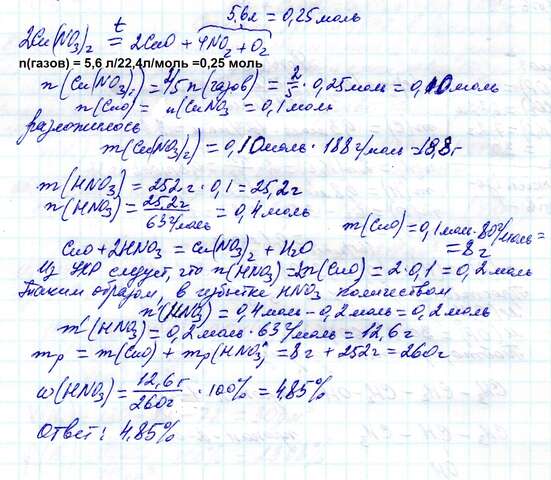 5,6л = 0,25 моль
2Cu(NO₃)₂ =ᵗ 2CuO + 4NO₂ + O₂
n(газов) = 5,6 л/22,4л/моль =0,25 моль
n(Cu(NO₃)₂) = 2/5 n(газов) = 2/5 · 0,25моль = 0,10моль
n(CuO) = n(CuNO₃ = 0,1моль
разложилось
m(Cu(NO₃)₂) = 0,10моль · 188 г/моль = 18,8г
m(HNO₃) = 252г · 0,1 = 25,2г
n(HNO₃) = 25,2г / 63г/моль = 0,4моль
m(CuO) = 0,1моль · 80г/моль =
= 8г
CuO + 2HNO₃ = Cu(NO₃)₂ + H₂O
Из УХР следует, что n(HNO₃) = 2n(CuO) = 2 · 0,1 = 0,2моль
Таким образом, в избытке HNO₃ количеством
n'(HNO₃) = 0,4моль - 0,2моль = 0,2моль
m'(HNO₃) = 0,2моль · 63г/моль = 12,6г
mр = m(CuO) + mр(HNO₃) = 8г + 252г = 260г
ω(HNO₃) = 12,6г / 260г · 100% = 4,85%
Ответ: 4,85%